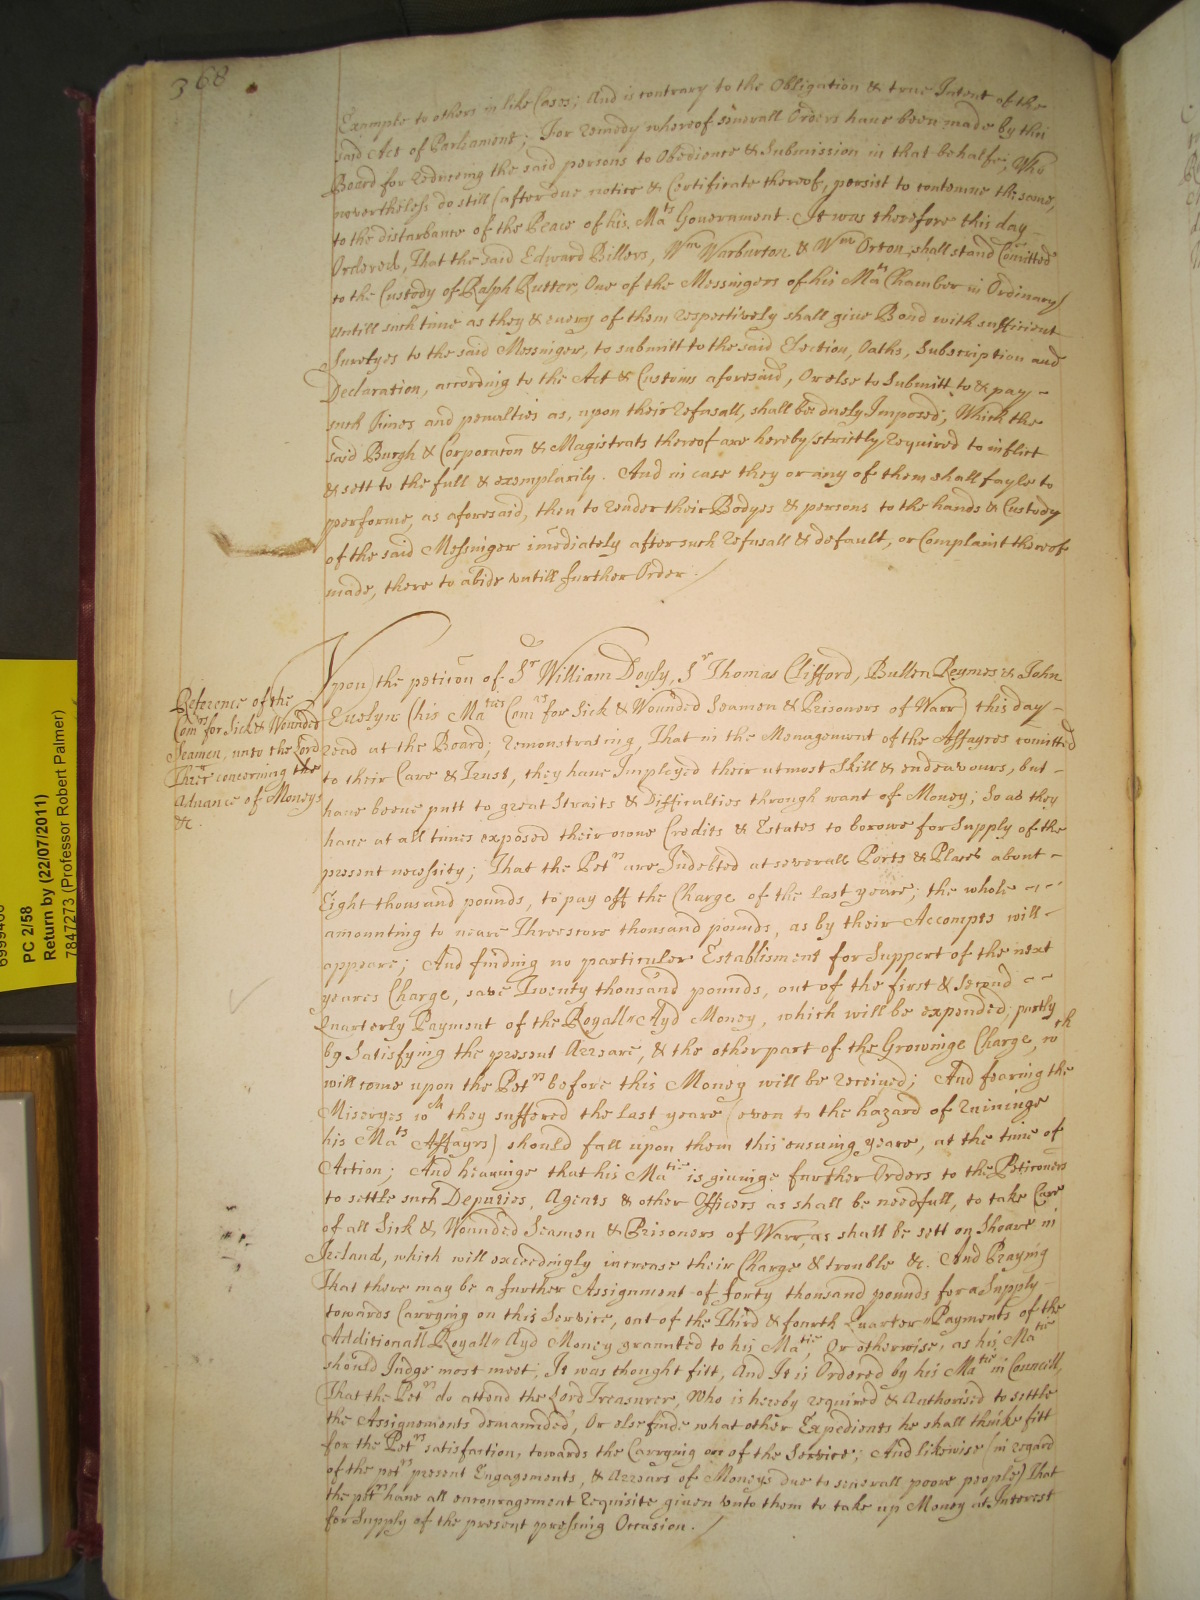 368
Example to others in like Cases; And is contrary to the Obligation & true Intent of the
said Act of Parliament; For remedy whereof severall Orders have been made by this
Board for reduceing the said persons to Obedience & Submission in that behalfe; Who
nevertheless do still (after due notice & Certificate thereof, persist to contemne the same,
to the disturbance of the Peace of his Mats Government. It was therefore this day -
Ordered, That the said Edward Billers, Wm Warburton & Wm Orton, shall stand Comitted
to the Custody of Ralph Rutter, One of the Messingers of his Mats Chamber in Ordinary
untill such time as they & every of them respectively shall give Bond with sufficient
Suretyes to the said Messinger, to submitt to the said Election, Oaths, Subscription and
Declaration, according to the Act & Customs aforesaid, Or else to Submitt to & pay -
such Fines and penalties as, upon their refusall, shall be duely Imposed; Which the
said Burgh & Corporacon & Magistrats thereof are hereby strictly required to inflict
& sett to the full & exemplarily. And in case they or any of them shall fayle to
performe, as aforesaid, then to render their Bodyes & persons to the hands & Custody
of the said Messinger imediately after such refusall & default, or Complaint thereof
made, there to abide untill further Order.
Reference of the
Comrs for Sick & Wounded
Seamen, unto the Lord
Threr concerning the
Advance of Moneys
&c.
Upon the peticon of Sr William Doyly, Sr Thomas Clifford, Bullen Reymes & John
Evelyn (his Maties Comrs for Sick & Wounded Seamen & Prisoners of Warr) this day -
read at the Board; remonstrating, That in the Management of the Affayres comitted
to their Care & Trust, they have Imployed their utmost skill & endeavours, but -
have beene putt to great Straits & Difficulties through want of Money; So as they
have at all times exposed their owne Credits & Estates to borowe for Supply of the
present necessity; That the Petrs are Indebted at severall Ports & Places about -
Eight thousand pounds, to pay off the Charge of the last yeare; the whole - - -
amounting to neare Threescore thousand pounds, as by their Accompts will -
appeare; And finding no particuler Establisment for Support of the next
yeares Charge, save Twenty thousand pounds, out of the first & second - -
Quarterly Payment of the Royall Ayd Money, which will be expended, partly
by Satisfying the present Arreare, & the other part of the Growinge Charge, wch
will come upon the Petrs before this Money will be received; And fearing the
Miseryes wch they suffered the last yeare (even to the hazard of ruininge
his Mats Affayrs) should fall upon them this ensuing yeare, at the time of
Action; And hearinge that his Matie is givinge further Orders to the Peticoners
to settle such Deputies, Agents & other Officers as shall be needfull, to take Care
of all Sick & Wounded Seamen & Prisoners of Warr, as shall be sett on Shoare in
Ireland, which will exceedingly increase their Charge & trouble &c. And Praying
That there may be a further Assignment of forty thousand pounds for a Supply -
towards Carrying on this Service, out of the Third & fourth Quarter Payments of the
Additionall Royall Ayd Money graunted to his Matie, Or otherwise, as his Matie
should Judge most meet; It was thought fitt, And It is Ordered by his Matie in Councill,
That the Petrs do attend the Lord Treasurer, Who is hereby required & Authorised to settle
the Assignements demanded, Or else finde what other Expedients he shall thinke fitt
for the Petrs satisfaction, towards the Carrying on of the Service; And likewise (in regard
of the petrs present Engagements, & Arrears of Moneys due to severall poore people) That
the petrs have all encouragement requisite given unto them to take up Money at Interest
for Supply of the present pressing Occasion.
PC 2/58
Return by (22/07/2011)
7847273 (Professor Robert Palmer)